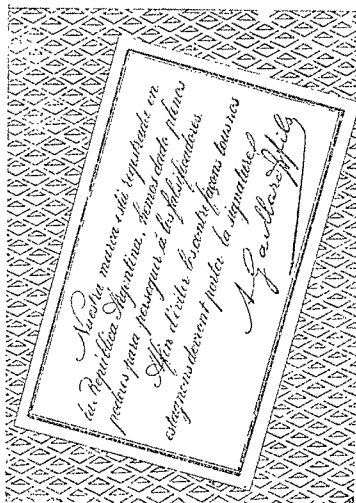 Nuestra marca está registrada en
la República Argentina, hemos dado plenos
poderes para perseguir á los falsificadores.
Afin d'éviter les contrefaçons tous nos
estagnons devront porter la signature
A Gaillard fils